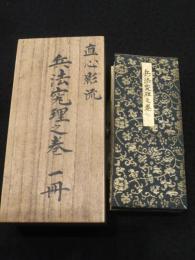 直心影流
兵法究理之巻 一冊
兵法究理之巻